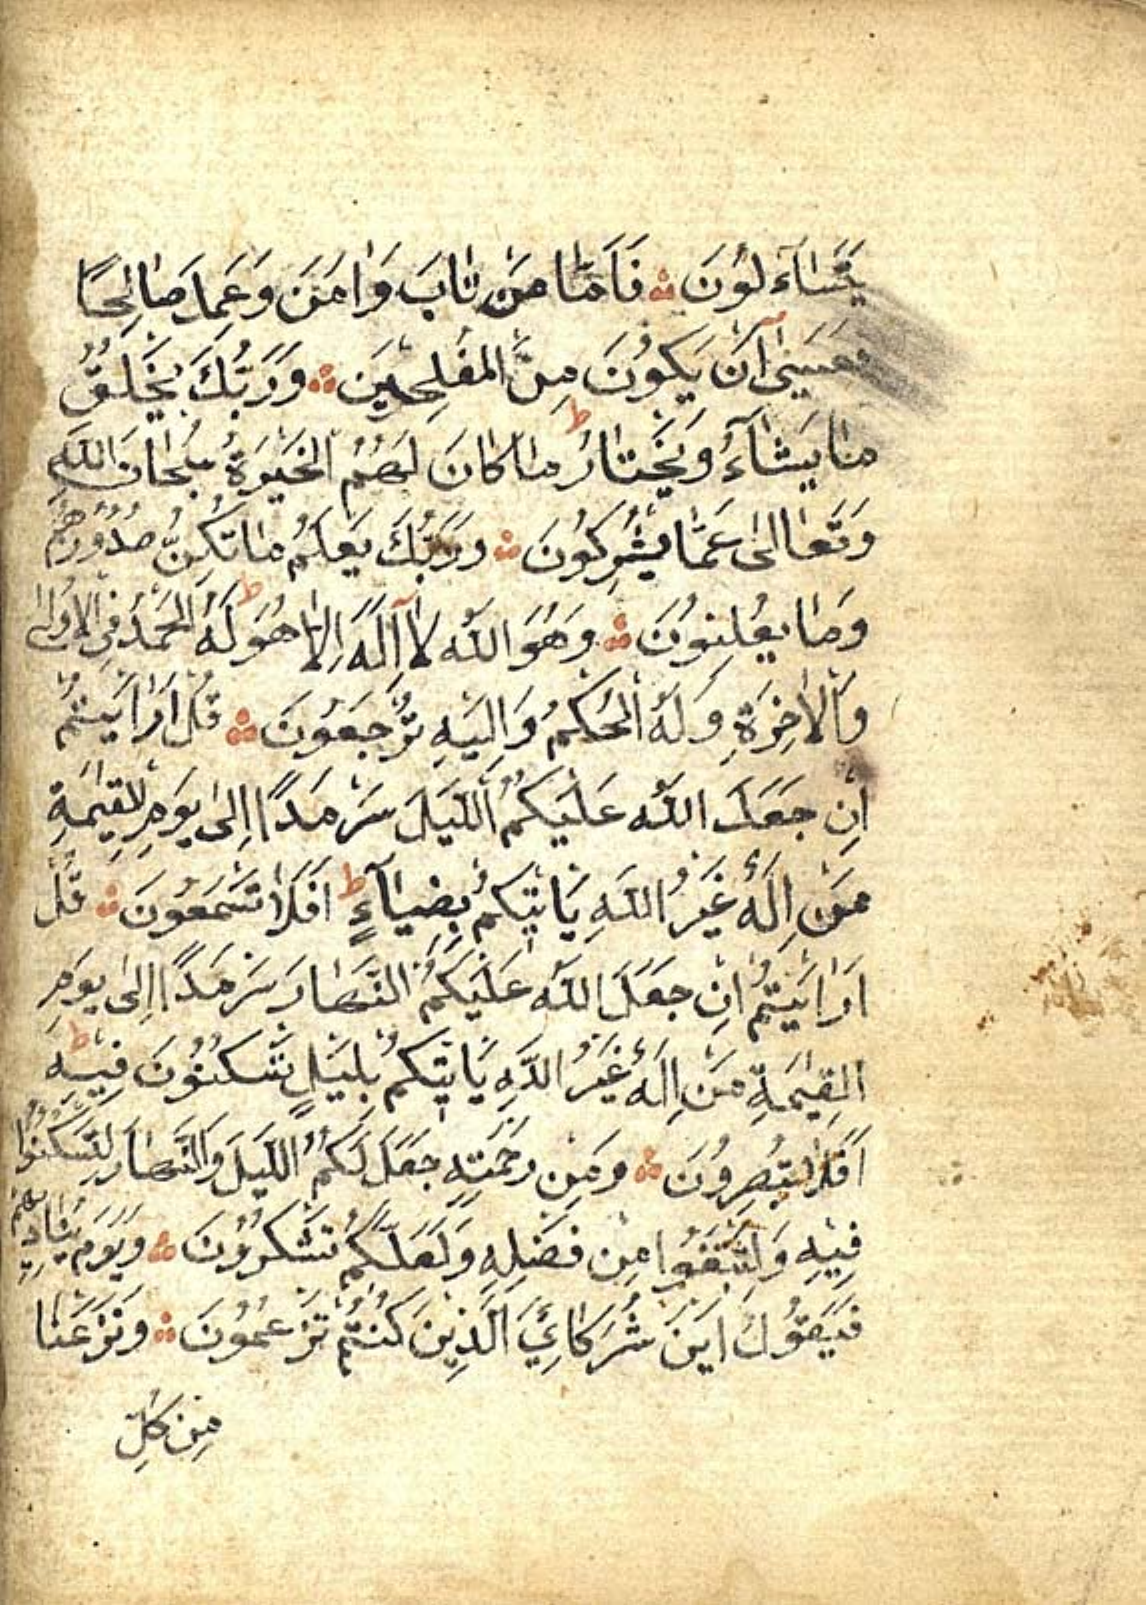 يَتَسَاۤءَلُوْنَ ۞ فَاَمَّا مَنْ تَابَ وَاٰمَنَ وَعَمِلَ صَالِحًا
فَعَسٰۤى اَنْ يَكُوْنَ مِنَ الْمُفْلِحِيْنَ ۞ وَرَبُّكَ يَخْلُقُ
مَا يَشَاۤءُ وَيَخْتَارُ ط مَا كَانَ لَهُمُ الْخِيَرَةُ سُبْحَانَ اللّٰهِ
وَتَعَالٰى عَمَّا يُشْرِكُوْنَ ۞ وَرَبُّكَ يَعْلَمُ مَا تُكِنُّ صُدُوْرُهُمْ
وَمَا يُعْلِنُوْنَ ۞ وَهُوَ اللّٰهُ لَاۤ اِلٰهَ اِلَّا هُوَ ط لَهُ الْحَمْدُ فِى الْاُوْلٰى
وَالْاٰخِرَةِ وَلَهُ الْحُكْمُ وَاِلَيْهِ تُرْجَعُوْنَ ۞ قُلْ اَرَاَيْتُمْ
اِنْ جَعَلَ اللّٰهُ عَلَيْكُمُ الَّيْلَ سَرْمَدًا اِلٰى يَوْمِ الْقِيٰمَةِ
مَنْ اِلٰهٌ غَيْرُ اللّٰهِ يَاْتِيْكُمْ بِضِيَاۤءٍ ط اَفَلَا تَسْمَعُوْنَ ۞ قُلْ
اَرَاَيْتُمْ اِنْ جَعَلَ اللّٰهُ عَلَيْكُمُ النَّهَارَ سَرْمَدًا اِلٰى يَوْمِ
الْقِيٰمَةِ مَنْ اِلٰهٌ غَيْرُ اللّٰهِ يَاْتِيْكُمْ بِلَيْلٍ تَسْكُنُوْنَ فِيْهِ ط
اَفَلَا تُبْصِرُوْنَ ۞ وَمِنْ رَحْمَتِهِ جَعَلَ لَكُمُ الَّيْلَ وَالنَّهَارَ لِتَسْكُنُوْا
فِيْهِ وَلِتَبْتَغُوْا مِنْ فَضْلِهِ وَلَعَلَّكُمْ تَشْكُرُوْنَ ۞ وَيَوْمَ يُنَادِيْهِمْ
فَيَقُوْلُ اَيْنَ شُرَكَائِيَ الَّذِيْنَ كُنْتُمْ تَزْعُمُوْنَ ۞ وَنَزَعْنَا
مِنْ كُلِّ